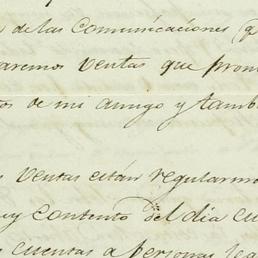 de las comunicaciones (q
aremos ventas que pron
os de mi amigo y tamb
s ventas están regularme
uy contento del dia cu
s cuentas a personas